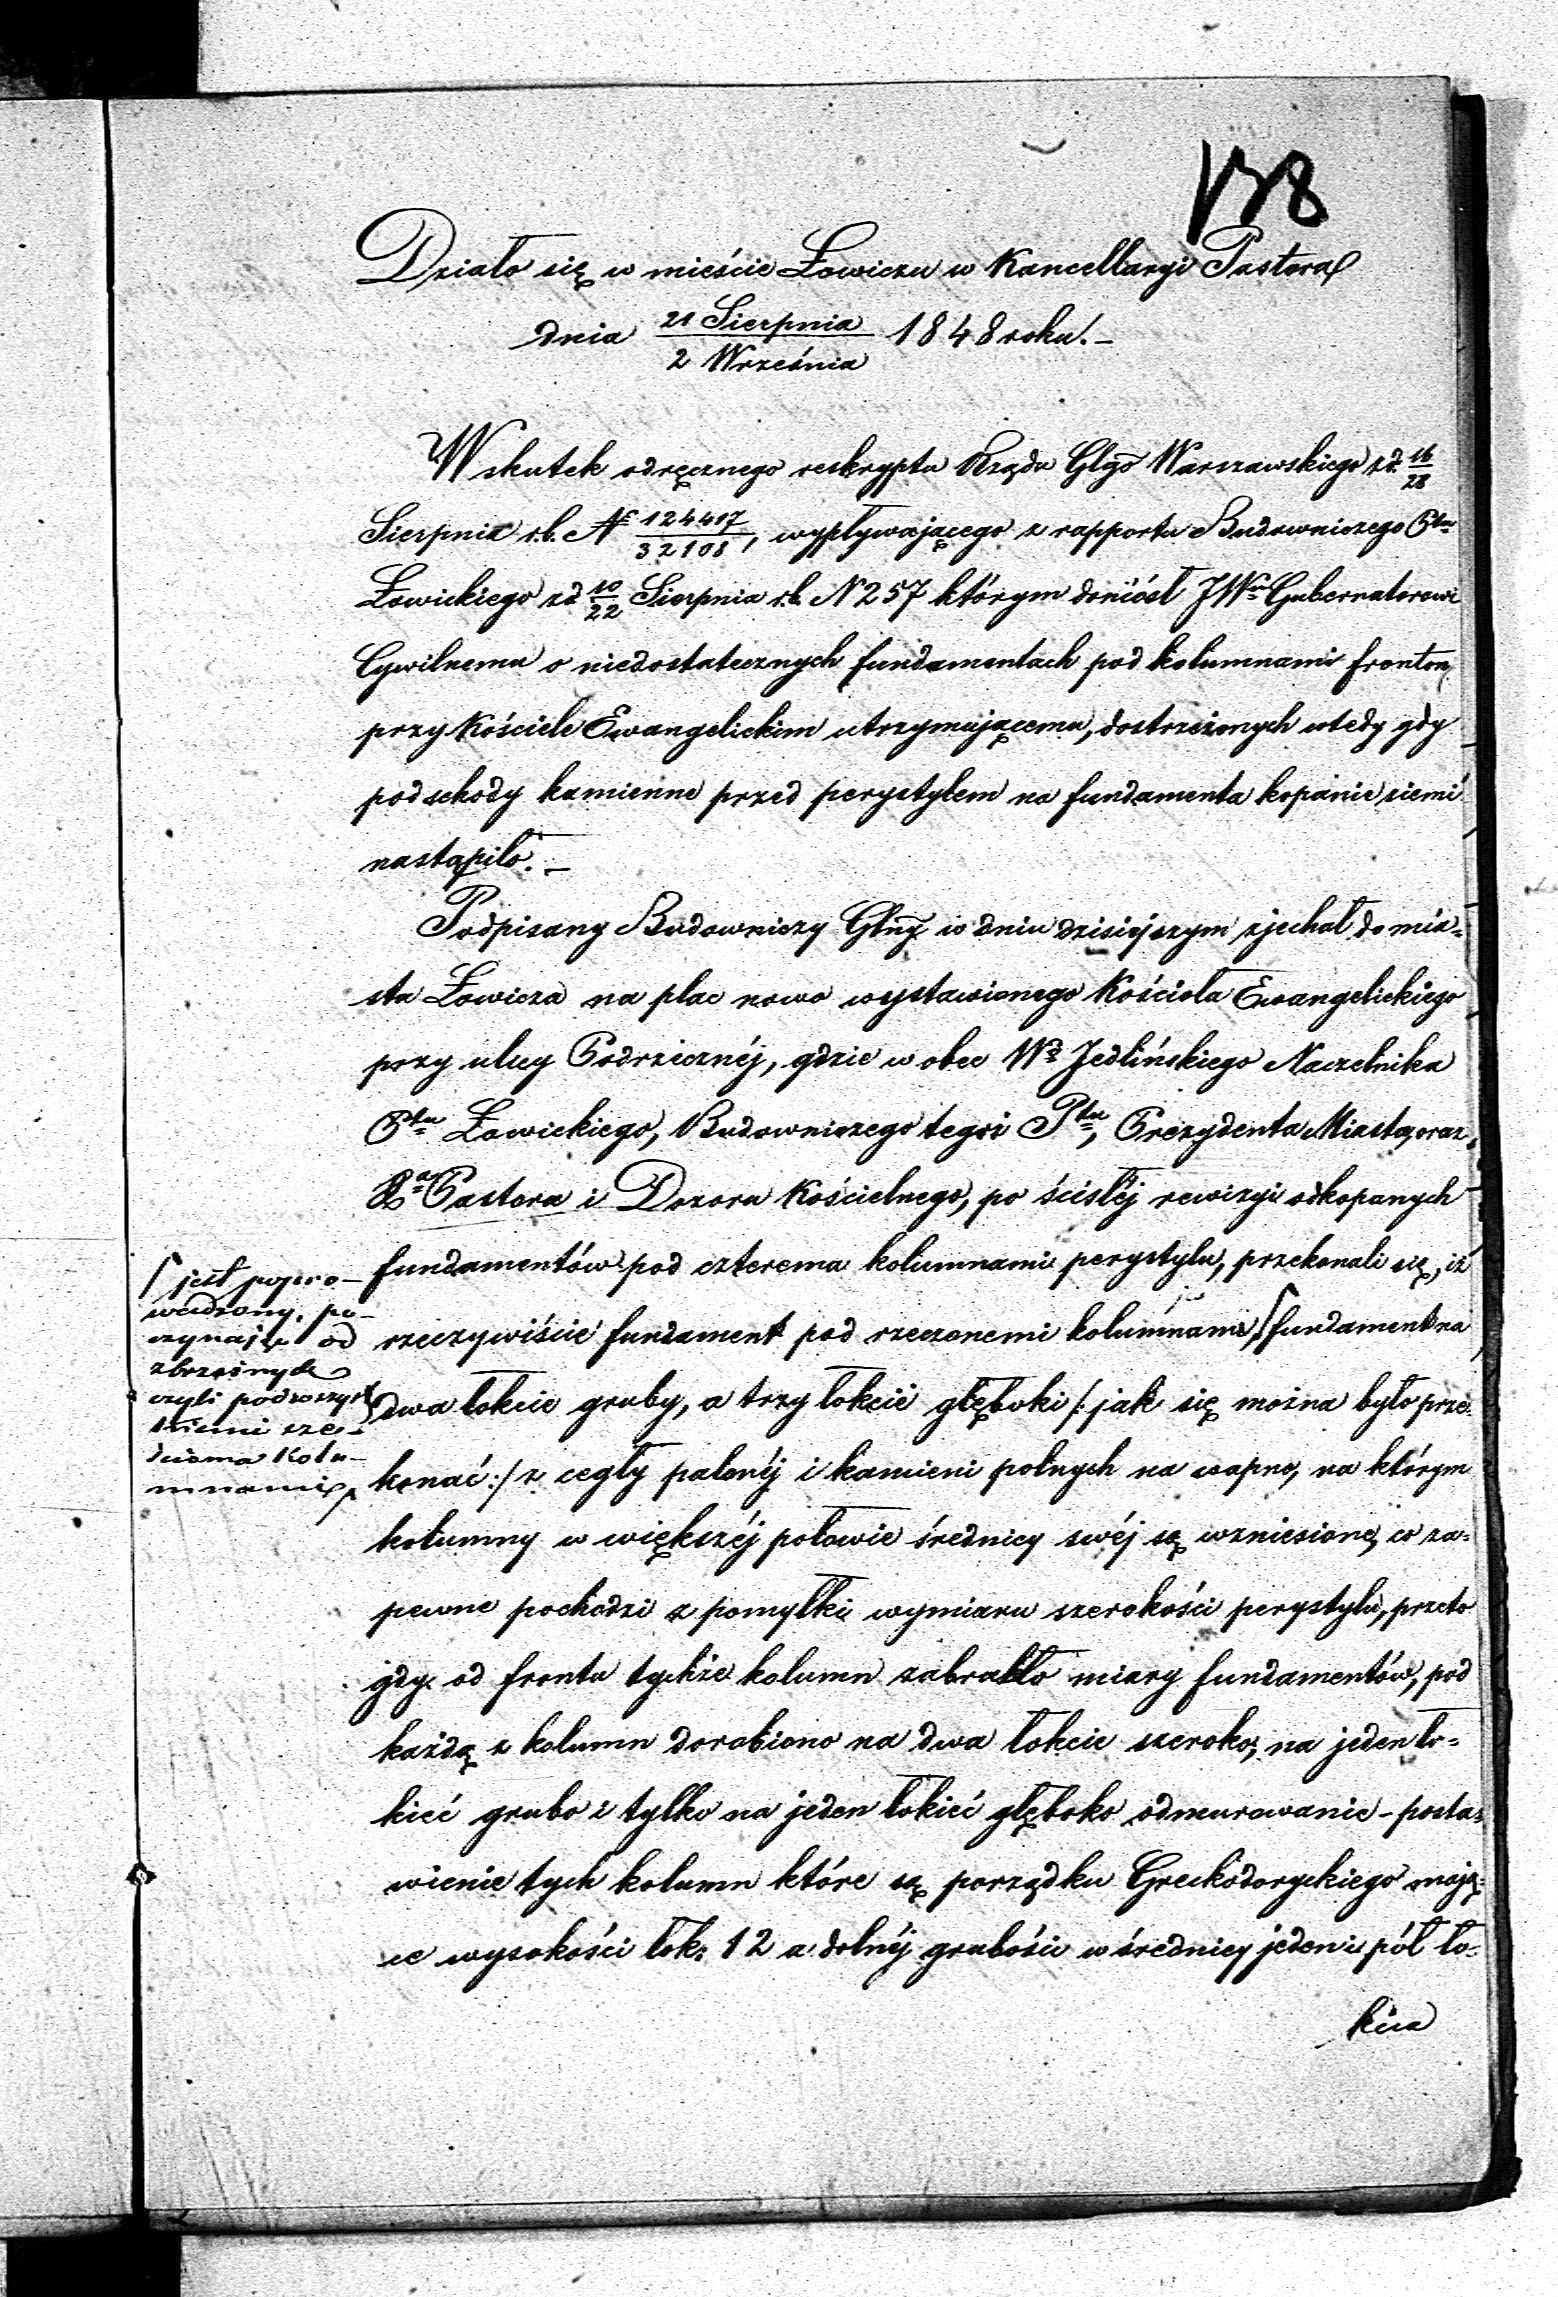 138
Działo się w mieście Łowiczu w Kancellaryi Pastora
dnia 21 Sierpnia / 2 Września 1848 roku.–
Wskutek odręcznego reskryptu Rządu Glgo Warszawskiego zd. 16/28
Sierpnia r.b. № 124417/32108, wypływającego z rapportu Budowniczego Ptu
Łowickiego zd 10/22 Sierpnia r.b. N 257 którym doniósł JWu Gubernatorowi
Cywilnemu o niedostatecznych fundamentach pod kolumnami fronton
przy Kościele Ewangelickim utrzymującemu, dostrzeżonych wtedy gdy
pod schody kamienne przed perystylem na fundamenta kopanie ziemi
nastąpiło.–
Podpisany Budowniczy Głny w dniu dzisiéjszym zjechał do mia-
sta Łowicza na plac nowo wystawionego Kościoła Ewangelickiego
przy ulicy Podrzecznéj, gdzie w obec Wo Jedlińskiego Naczelnika
Ptu Łowickiego, Budowniczego tegoż Ptu, Prezydenta Miasta, oraz
Xa Pastora i Dozoru Kościelnego, po ścisłéj rewizyi odkopanych
fundamentów pod czterema kolumnami perystylu, przekonali się, iż
rzeczywiście fundament pod rzeczonemi kolumnami, ∫ fundament na
dwa łokcie gruby, a trzy łokcie głęboki /: jak się można było prze-
konać :/ z cegły palonéj i kamieni polnych na wapno, na którym
kolumny w większéj połowie średnicy swéj są wzniesione, co za-
pewne pochodzi z pomyłki wymiaru szerokości perystylu, przeto
gdy od frontu tychże kolumn zabrakło miary fundamentów, pod
każdą z kolumn dorobiono na dwa łokcie szeroko, na jeden ło-
kieć grubo i tylko na jeden łokieć głęboko odmurowanie – posta-
wienie tych kolumn które są porządku Greckodoryckiego mają-
ce wysokości łok: 12 a dolnéj grubości w średnicy jeden i pół ło-
kcia
∫ jest popro-
wadzony, po-
czynając od
zbrzeżnych
czyli podroszyst
temi sze-
ścioma kolu-
mnami,